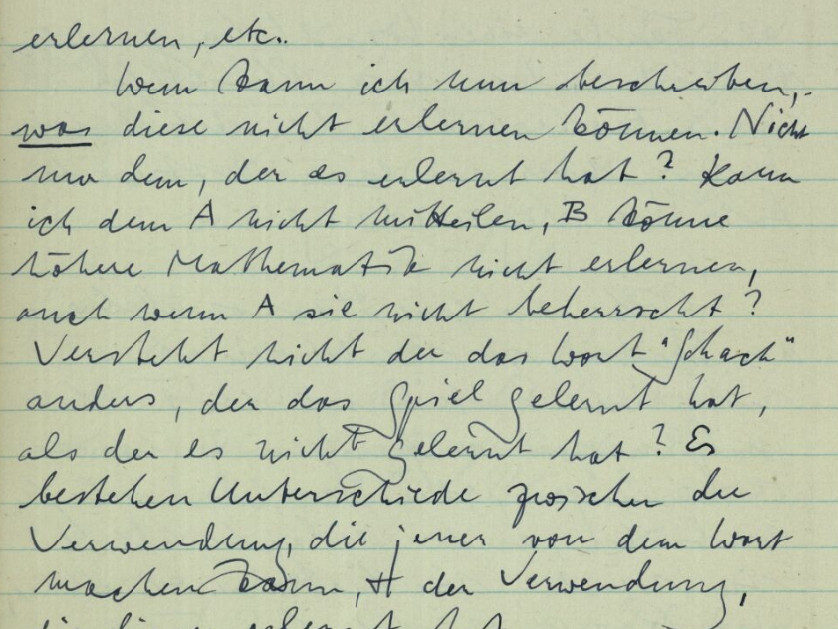 erlernen, etc..
Wem kann ich nun beschreiben,
was diese nicht erlernen können. Nicht
nur dem, der es erlernt hat? Kann
ich dem A nicht mitteilen, B könne
höhere Mathematik nicht erlernen,
auch wenn A sie nicht beherrscht?
Versteht nicht der das Wort "Schach"
anders, der das Spiel gelernt hat,
als der es nicht gelernt hat? Es
bestehen Unterschiede zwischen der
Verwendung, die jener von dem Wort
machen kann, & der Verwendung,